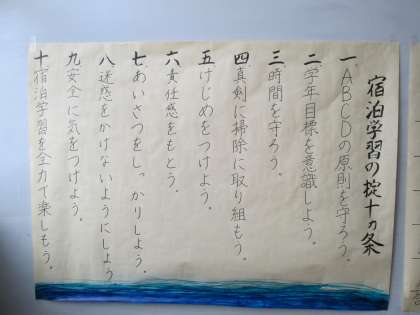 宿泊学習の掟十カ条
一 ABCDの原則を守ろう。
二 学年目標を意識しよう。
三 時間を守ろう。
四 真剣に掃除に取り組もう。
五 けじめをつけよう。
六 責任感をもとう。
七 あいさつをしっかりしよう。
八 迷惑をかけないようにしよう
九 安全に気をつけよう。
十 宿泊学習を全力で楽しもう。